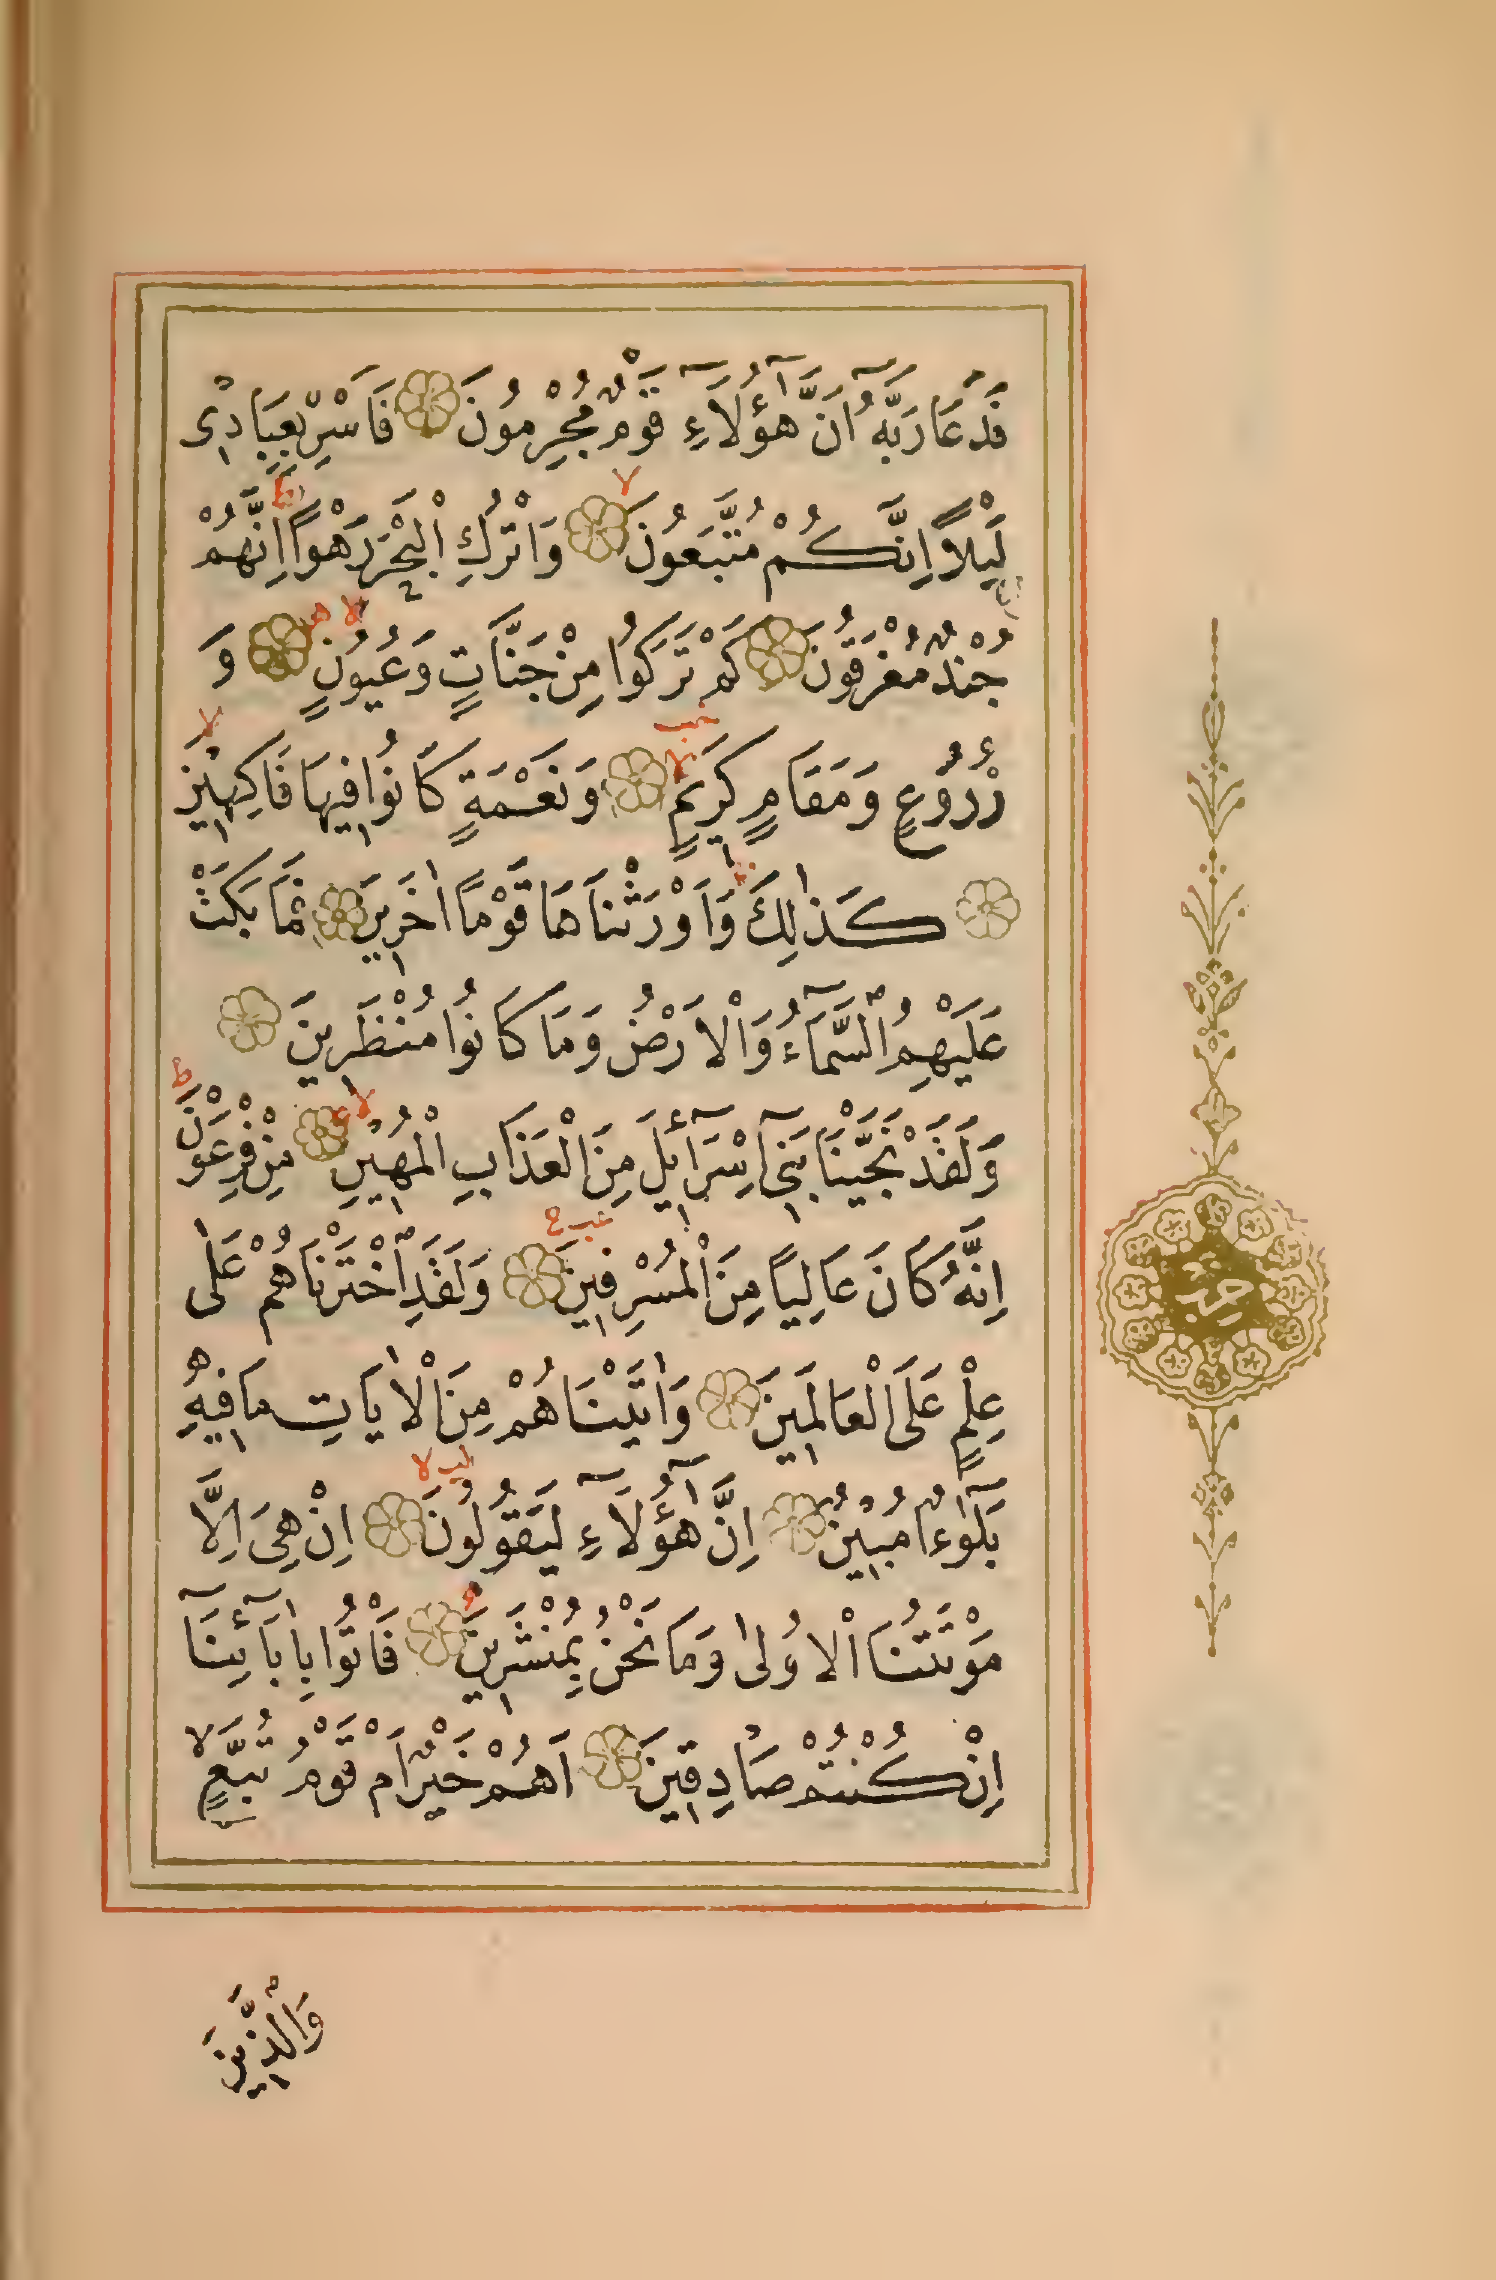 فَدَعَا رَبَّهُٓ اَنَّ هٰٓؤُلَٓاءِ قَوْمٌ مُجْرِمُونَ فَاَسْرِ بِعِبَادٖى
لَيْلاً اِنَّكُمْ مُتَّبَعُونَ وَاتْرُكِ الْبَحْرَ رَهْواً اِنَّهُمْ
جُنْدٌ مُغْرَقُونَ كَمْ تَرَكُوا مِنْ جَنَّاتٍ وَعُيُونٍ وَ
زُرُوعٍ وَمَقَامٍ كَرٖيمٍ وَنَعْمَةٍ كَانُوا فٖيهَا فَاكِهٖينَ
كَذٰلِكَ وَاَوْرَثْنَاهَا قَوْماً اٰخَرٖينَ فَمَا بَكَتْ
عَلَيْهِمُ السَّمَٓاءُ وَالْاَرْضُ وَمَا كَانُوا مُنْظَرٖينَ
وَلَقَدْ نَجَّيْنَا بَنٖٓى اِسْرَٓائٖلَ مِنَ الْعَذَابِ الْمُهٖينِ مِنْ فِرْعَوْنَ
اِنَّهُ كَانَ عَالِياً مِنَ الْمُسْرِفٖينَ وَلَقَدِ اخْتَرْنَاهُمْ عَلٰى
عِلْمٍ عَلَى الْعَالَمٖينَ وَاٰتَيْنَاهُمْ مِنَ الْاٰيَاتِ مَا فٖيهِ
بَلٰٓؤٌا مُبٖينٌ اِنَّ هٰٓؤُلَٓاءِ لَيَقُولُونَ اِنْ هِىَ اِلَّا
مَوْتَتُنَا الْاُولٰى وَمَا نَحْنُ بِمُنْشَرٖينَ فَاْتُوا بِاٰبَٓائِنَٓا
اِنْ كُنْتُمْ صَادِقٖينَ اَهُمْ خَيْرٌ اَمْ قَوْمُ تُبَّعٍ
وَالَّذٖينَ